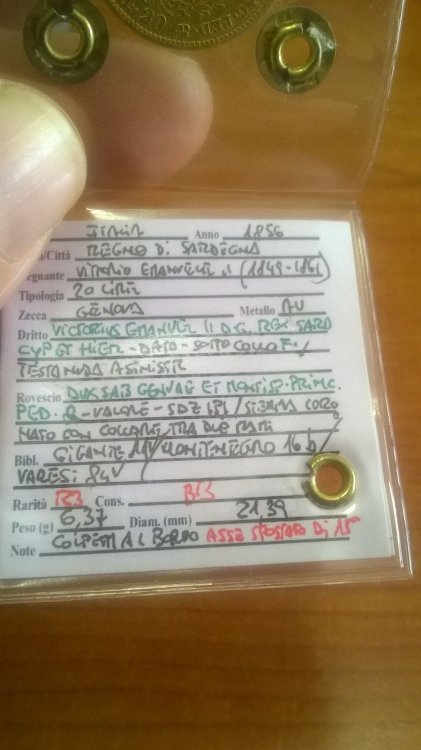 ITALIA Anno 1856
/Città REGNO DI SARDEGNA
egnante VITTORIO EMANUELE II (1849-1861)
Tipologia 20 LIRE
Zecca GENOVA Metallo AU
Dritto VICTORIUS EMANUEL II D.G. REX SARD
CYP ET HIER - DATA - SOTTO COLLO F. /
TESTA NUDA A SINISTR
Rovescio DUX SAB GENVAE ET MONTISF. PRINC.
PED. & - VALORE - /STEMMA CORO
NATO CON COLLARE TRA DUE RAMI
Bibl. GIGANTE /MONTENEGRO 16 b/
VARESI
Rarità R3 Cons. BB
Peso (g) 6,37 Diam. (mm) 21,39
Note COLPETTI AL BORDO ASSE SPOSTATO DI 15°